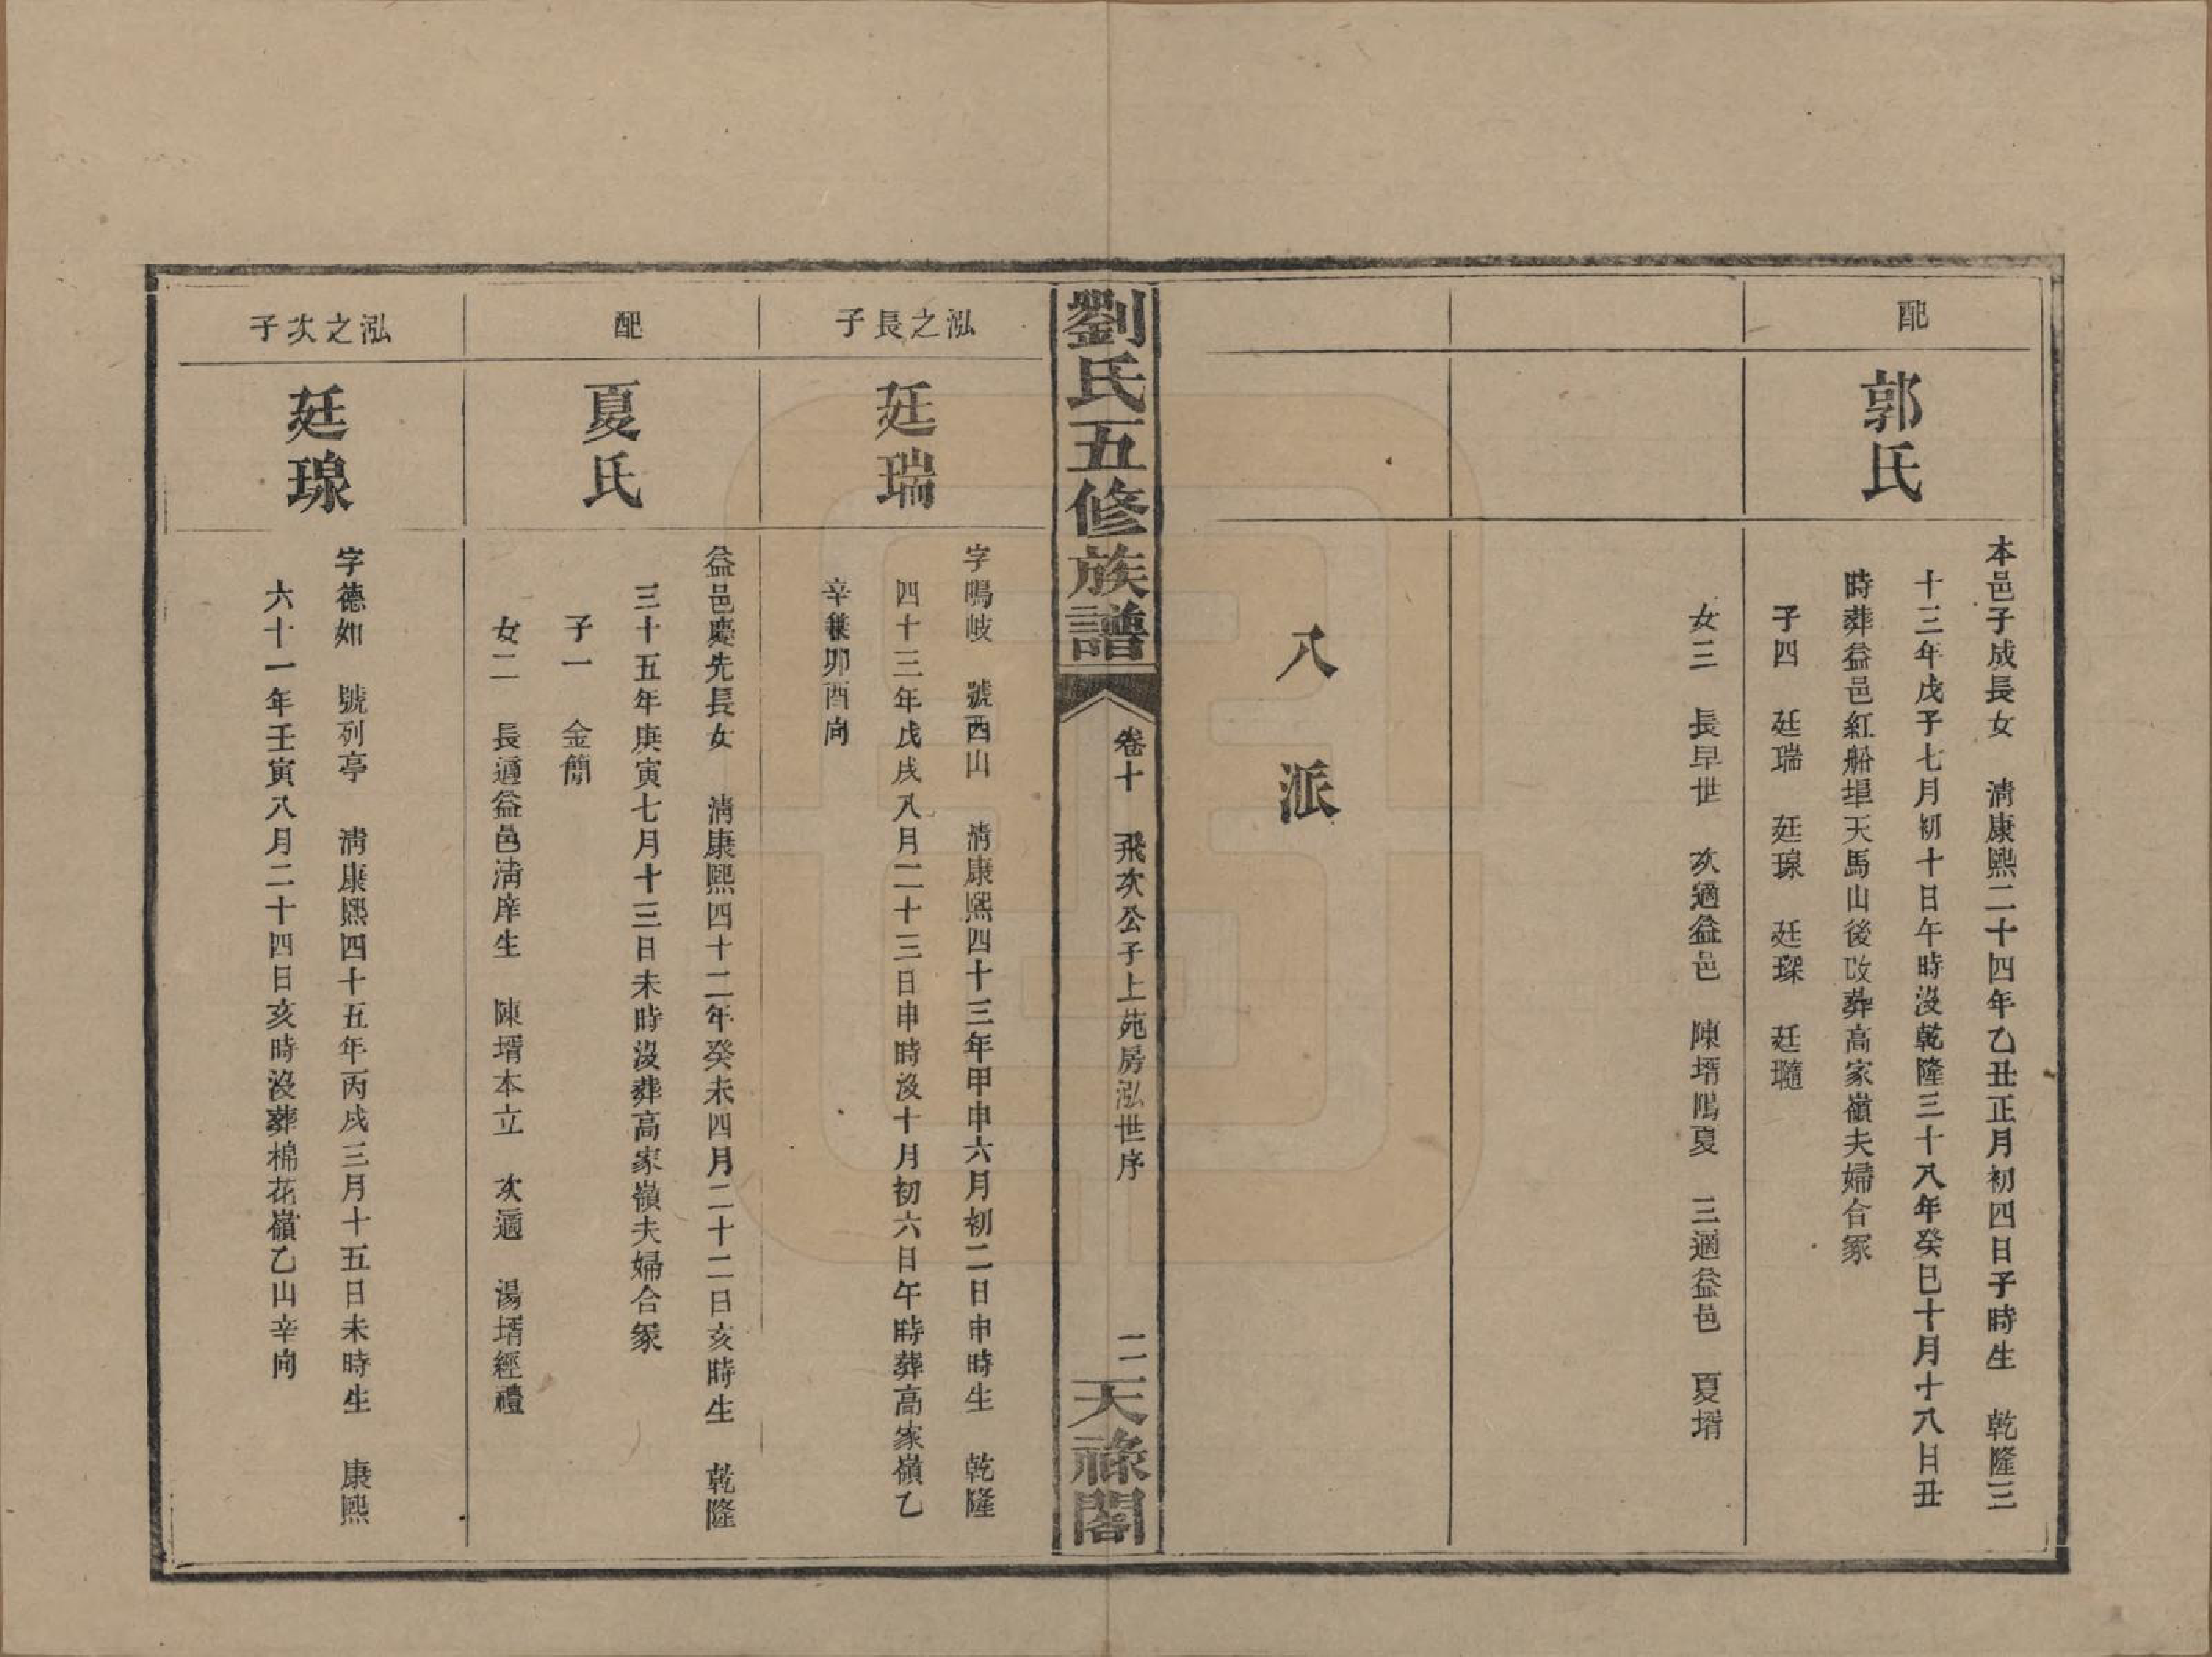 配
郭氏
本邑子成長女　清康熙二十四年乙丑正月初四日子時生　乾隆三
十三年戊子七月初十日午時沒乾隆三十八年癸巳十月十八日丑
時葬益邑紅船埠天馬山後改葬高家嶺夫婦合冢
子四　廷瑞　廷瑔　廷琛　廷瓍
女三　長早世　次適益邑　陳壻鳴夏　三適益邑　夏壻
八派
劉氏五修族譜
卷十　飛次公子上苑房泓世序
二
天祿閣
泓之長子
廷瑞
字鳴岐　號西山　清康熙四十三年甲申六月初二日申時生　乾隆
四十三年戊戌八月二十三日申時沒十月初六日午時葬高家嶺乙
辛兼卯酉向
配
夏氏
益邑慶先長女　清康熙四十二年癸未四月二十二日亥時生　乾隆
三十五年庚寅七月十三日未時沒葬高家嶺夫婦合冢
子一　金簡
女二　長適益邑清庠生　陳壻本立　次適　湯壻經禮
泓之次子
廷瑔
字德如　號列亭　清康熙四十五年丙戌三月十五日未時生　康熙
六十一年壬寅八月二十四日亥時沒葬棉花嶺乙山辛向